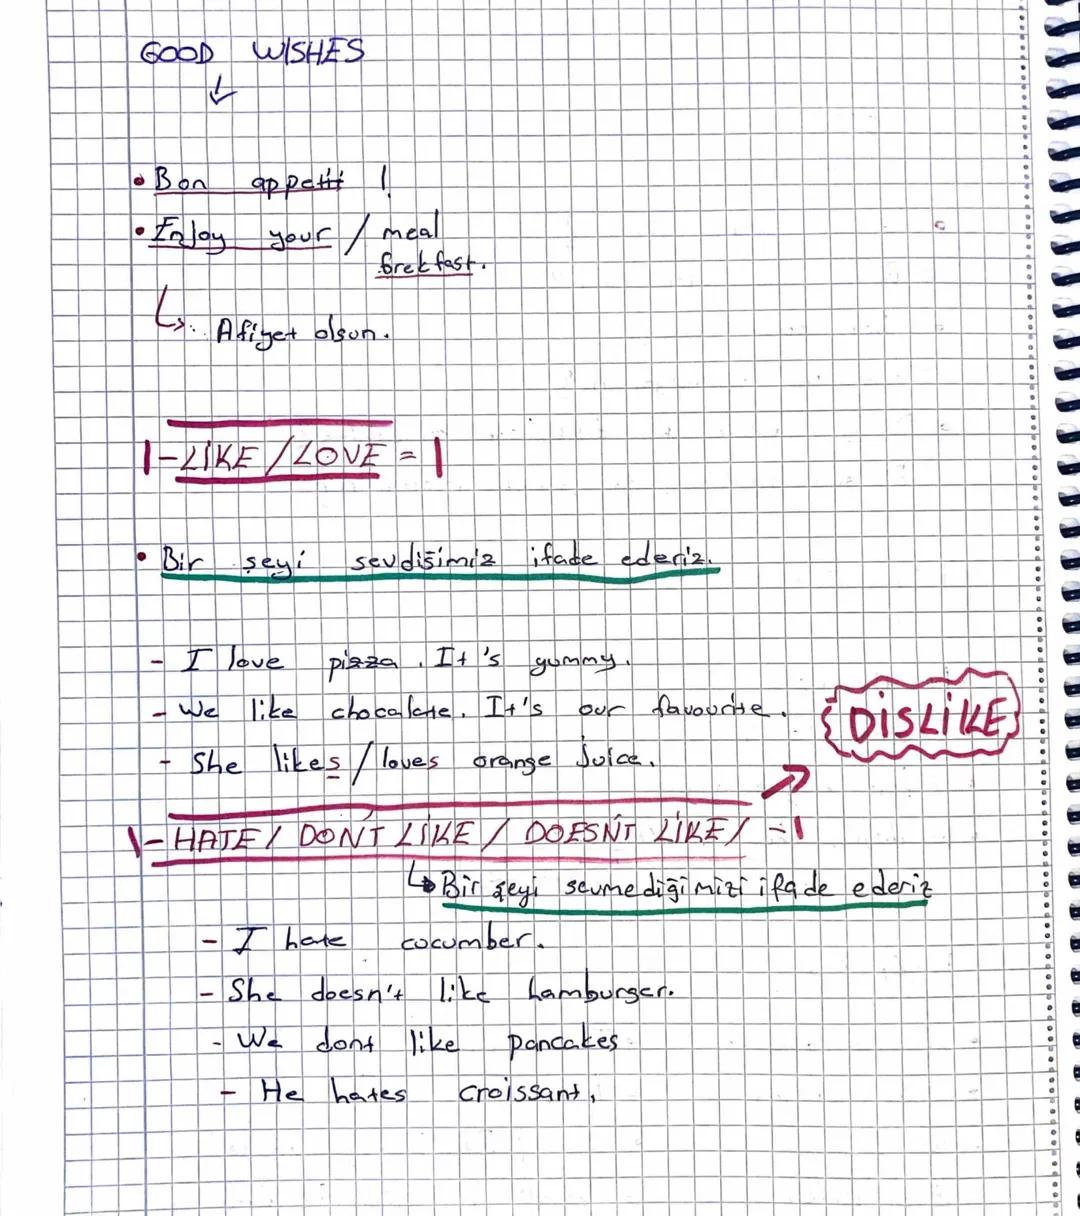 GOOD WISHES
• Bon appetit !
• Enjoy your / meal
brekfast.
Afiyet olsun.
1-LİKE / LOVE = 1
• Bir şeyi sevdiğimiz ifade ederiz.
- I love pizza. It's yummy.
- We like chocalate. It's our favourite.
DİSLİKE
- She likes / loves orange juice.
1-HATE / DON'T LİKE / DOESN'T LİKE / -1
Bir şeyi sevmediğimizi ifade ederiz
- I hate cocumber.
- She doesn't like hamburger.
- We dont like pancakes
- He hates croissant,